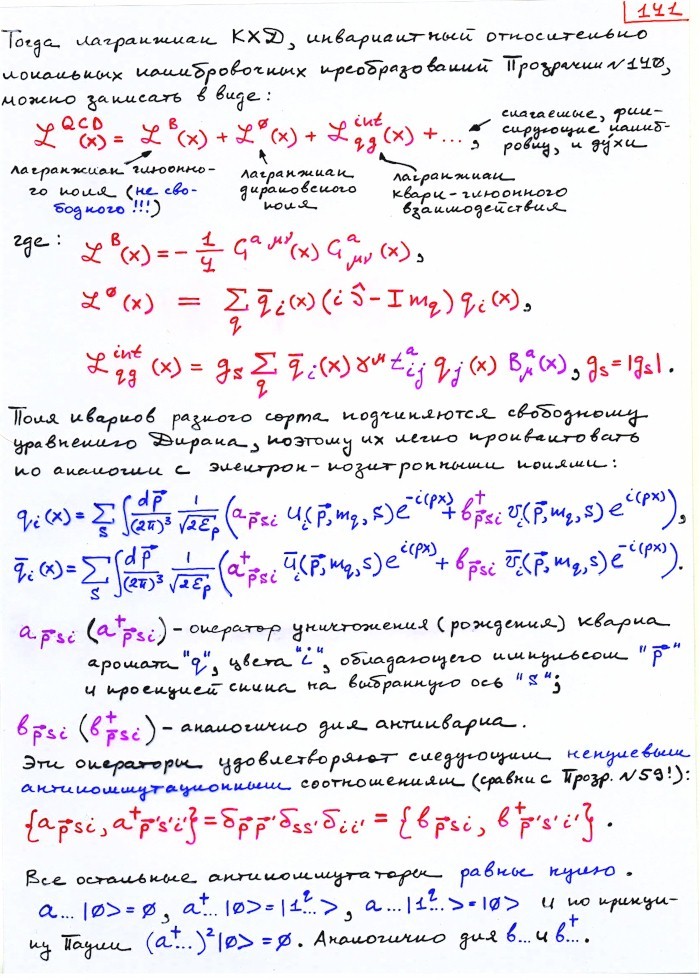 141
Тогда лагранжиан КХД, инвариантный относительно
локальных калибровочных преобразований Прозрачки №140,
можно записать в виде:
ℒ^{QCD}(x) = ℒ^B(x) + ℒ^ø(x) + ℒ^{int}_{qg}(x) + ...,
слагаемые, фиксирующие калибровку, и духи
лагранжиан глюонного поля (не свободного!!!)
лагранжиан дираковского поля
лагранжиан кварк-глюонного взаимодействия
где: ℒ^B(x) = -1/4 G^{a μν}(x) G^a_{μν}(x),
ℒ^ø(x) = Σ_q q̄_i(x) (i Ŝ - I m_q) q_i(x),
ℒ^{int}_{qg}(x) = g_s Σ_q q̄_i(x) γ^μ t^a_{ij} q_j(x) B^a_μ(x), g_s = |g_s|.
Поля кварков разного сорта подчиняются свободному
уравнению Дирака, поэтому их легко проквантовать
по аналогии с электрон-позитронными полями:
q_i(x) = Σ_s ∫ dp⃗/(2π)³ 1/√(2ε_p) (a_{p⃗si} u_i(p⃗, m_q, s) e^{-i(px)} + b⁺_{p⃗si} v_i(p⃗, m_q, s) e^{i(px)}),
q̄_i(x) = Σ_s ∫ dp⃗/(2π)³ 1/√(2ε_p) (a⁺_{p⃗si} ū_i(p⃗, m_q, s) e^{i(px)} + b_{p⃗si} v̄_i(p⃗, m_q, s) e^{-i(px)}).
a_{p⃗si} (a⁺_{p⃗si}) - оператор уничтожения (рождения) кварка
аромата "q", цвета "i", обладающего импульсом "p⃗"
и проекцией спина на выбранную ось "s";
b_{p⃗si} (b⁺_{p⃗si}) - аналогично для антикварка.
Эти операторы удовлетворяют следующим ненулевым
антикоммутационным соотношениям (сравни с Прозр. №59!):
{a_{p⃗si}, a⁺_{p⃗'s'i'}} = δ_{p⃗p⃗'} δ_{ss'} δ_{ii'} = {b_{p⃗si}, b⁺_{p⃗'s'i'}}.
Все остальные антикоммутаторы равны нулю.
a...|ø> = ø, a⁺...|ø> = |1^q...>, a...|1^q...> = |ø> и по принци-
пу Паули (a⁺...)²|ø> = ø. Аналогично для b... и b⁺....